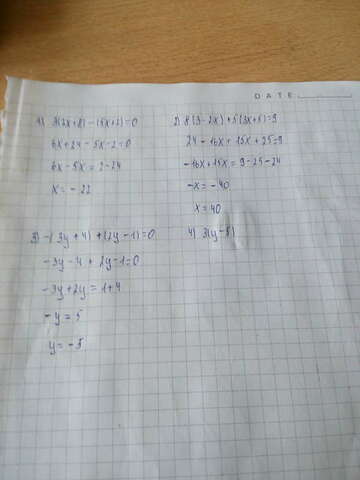 DATE:
1) 3(2x+8)-(5x+2)=0
6x+24-5x-2=0
6x-5x=2-24
x=-22
2) 8(3-2x)+5(3x+5)=9
24-16x+15x+25=9
-16x+15x=9-25-24
-x=-40
x=40
3) -(3y+4)+(2y-1)=0
-3y-4+2y-1=0
-3y+2y=1+4
-y=5
y=-5
4) 3(y-5)